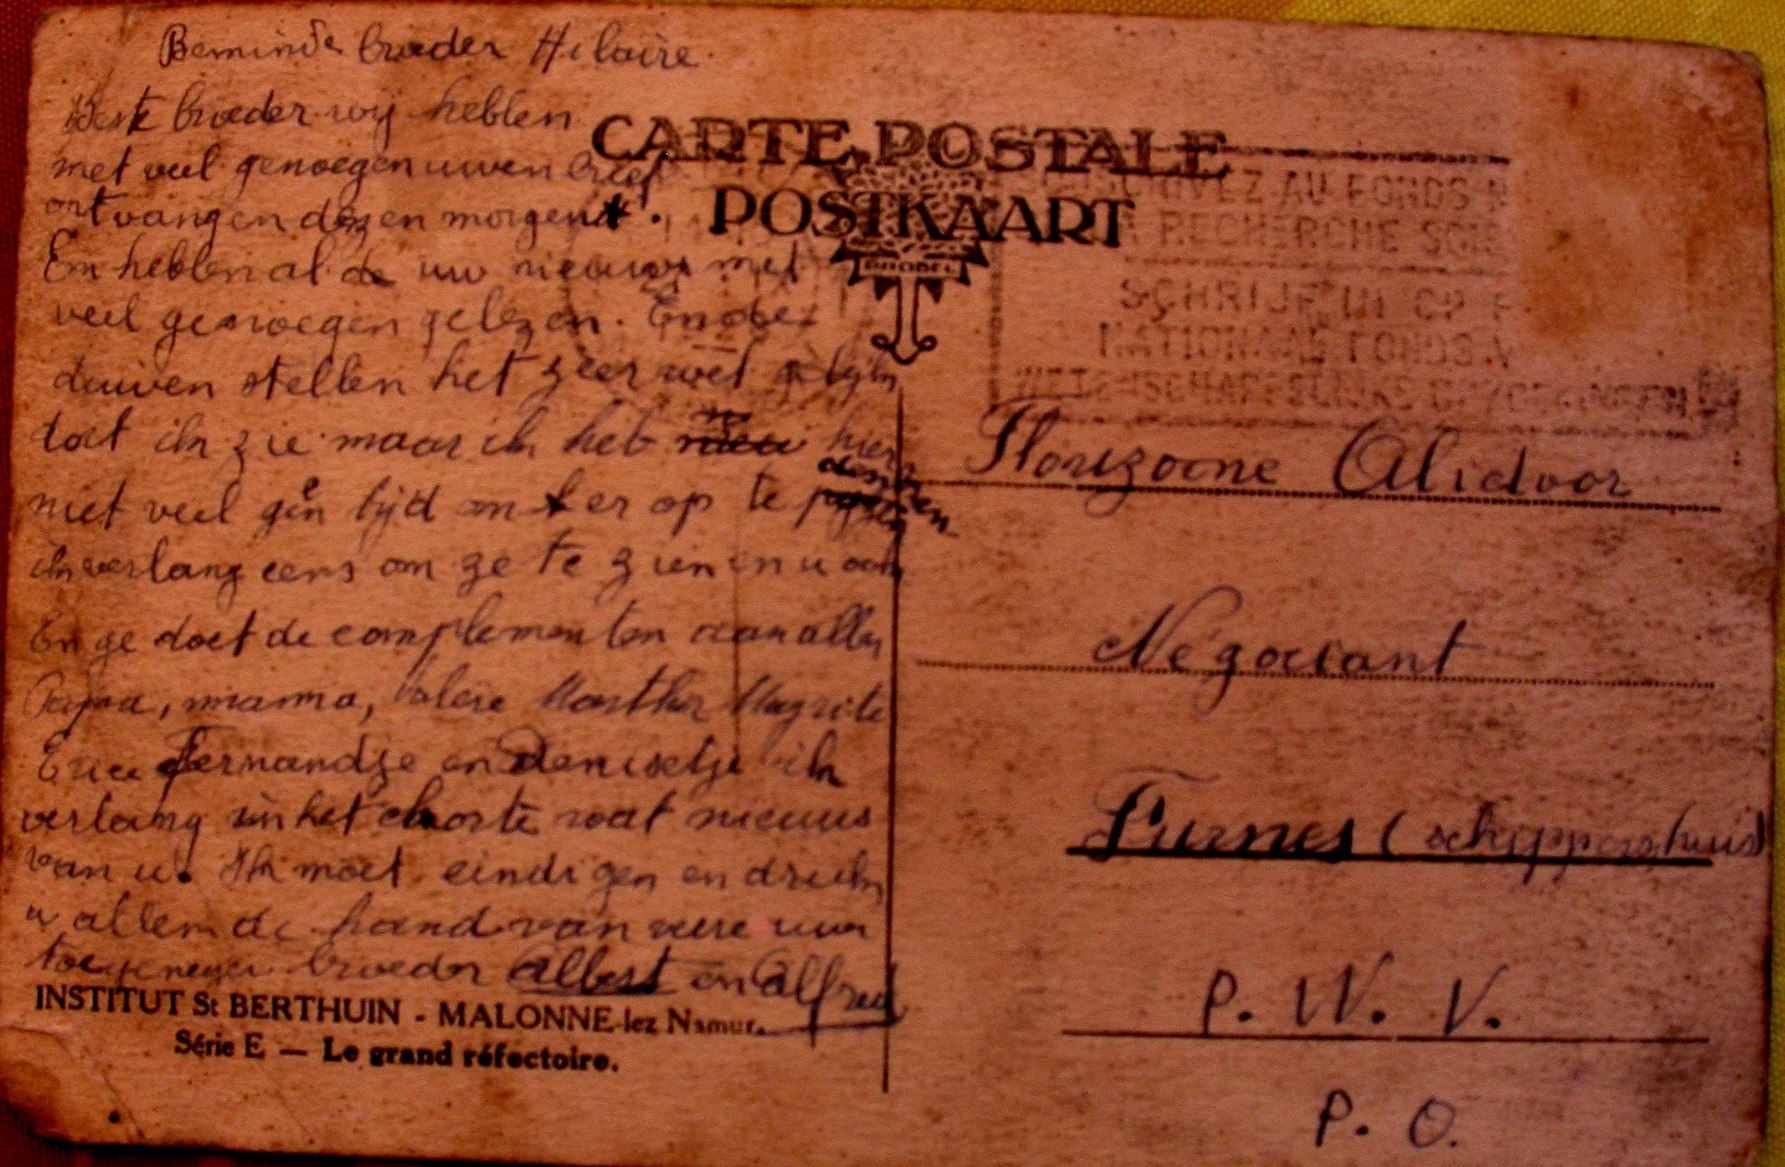 Beminde broeder Hilaire.
Beste broeder wij hebben
met veel genoegen uwen brief
ontvangen dezen morgen.
En hebben al de uw nieuws met
veel genoegen gelezen. En de
duiven stellen het zeer wel
dat ik zie maar ik heb hier
niet veel tijd om er op te denken
ik verlang eens om ze te zien en u ook
En ge doet de complementen aan allen
Papa, mama, Valere Marther Magrite
Erice Fernandje en Denisetje ik
verlang in het korte wat nieuws
van u. Ik moet eindigen en drukn
u allem de hand van vere uwe
toegenegen broeder Albert en Alfred
INSTITUT St BERTHUIN - MALONNE-lez Namur.
Série E — Le grand réfectoire.
CARTE POSTALE
POSTKAART
AU FONDS N
RECHERCHE SCIE
SCHRIJF IN OP
NATIONAAL FONDS
WETENSCHAPPELIJKE
Florizoone Alidoor
Négociant
Furnes (schippershuis)
P. W. V.
P. O.